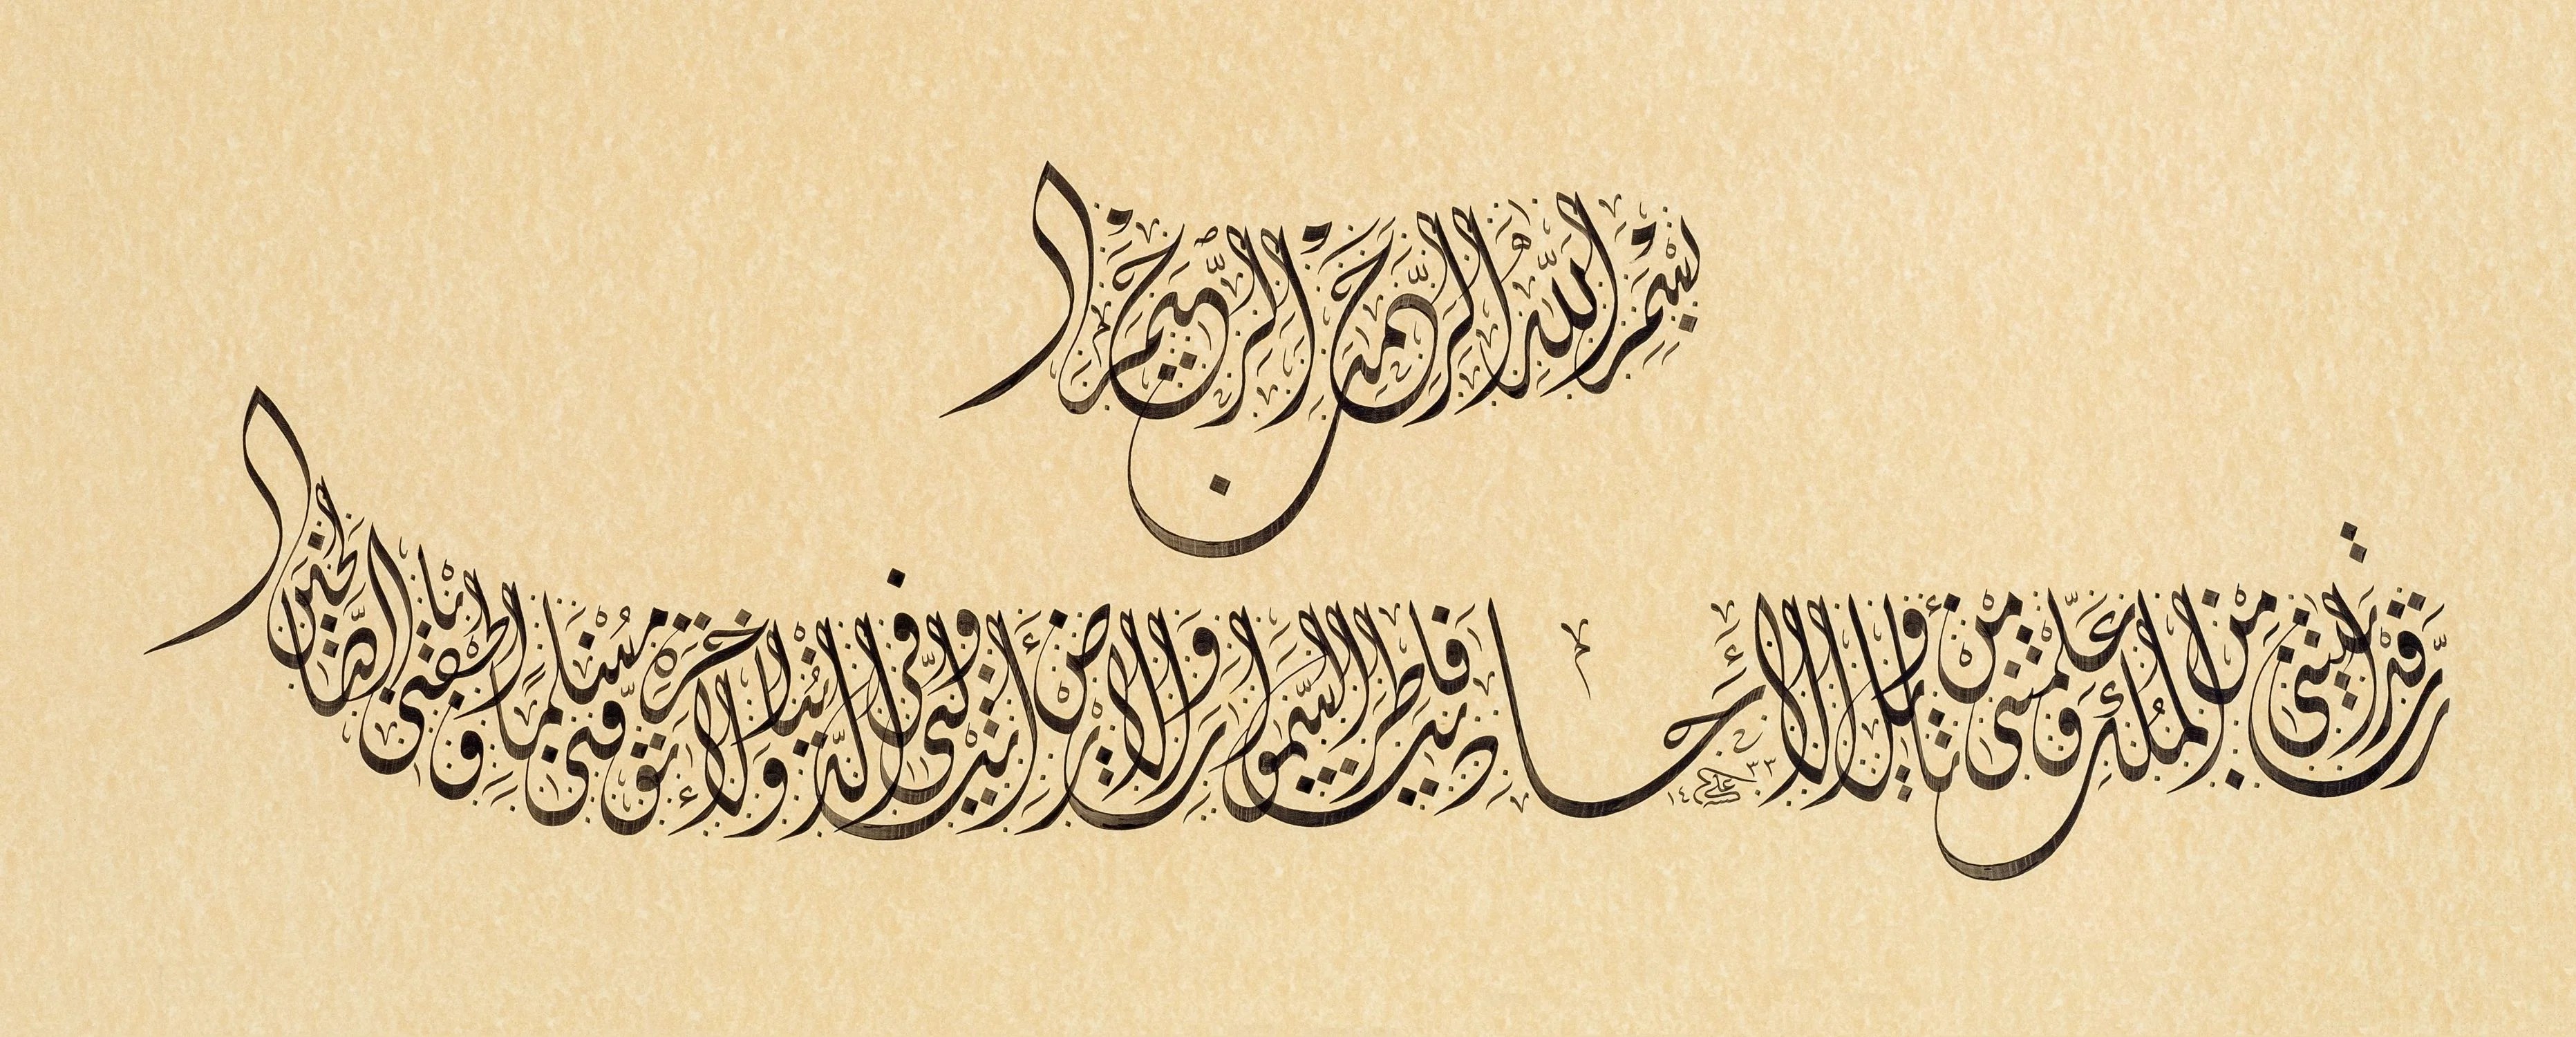 بِسْمِ اللَّهِ الرَّحْمَٰنِ الرَّحِيمِ
رَبِّ قَدْ آتَيْتَنِي مِنَ الْمُلْكِ وَعَلَّمْتَنِي مِن تَأْوِيلِ الْأَحَادِيثِ فَاطِرَ السَّمَاوَاتِ وَالْأَرْضِ أَنتَ وَلِيِّي فِي الدُّنْيَا وَالْآخِرَةِ تَوَفَّنِي مُسْلِمًا وَأَلْحِقْنِي بِالصَّالِحِينَ